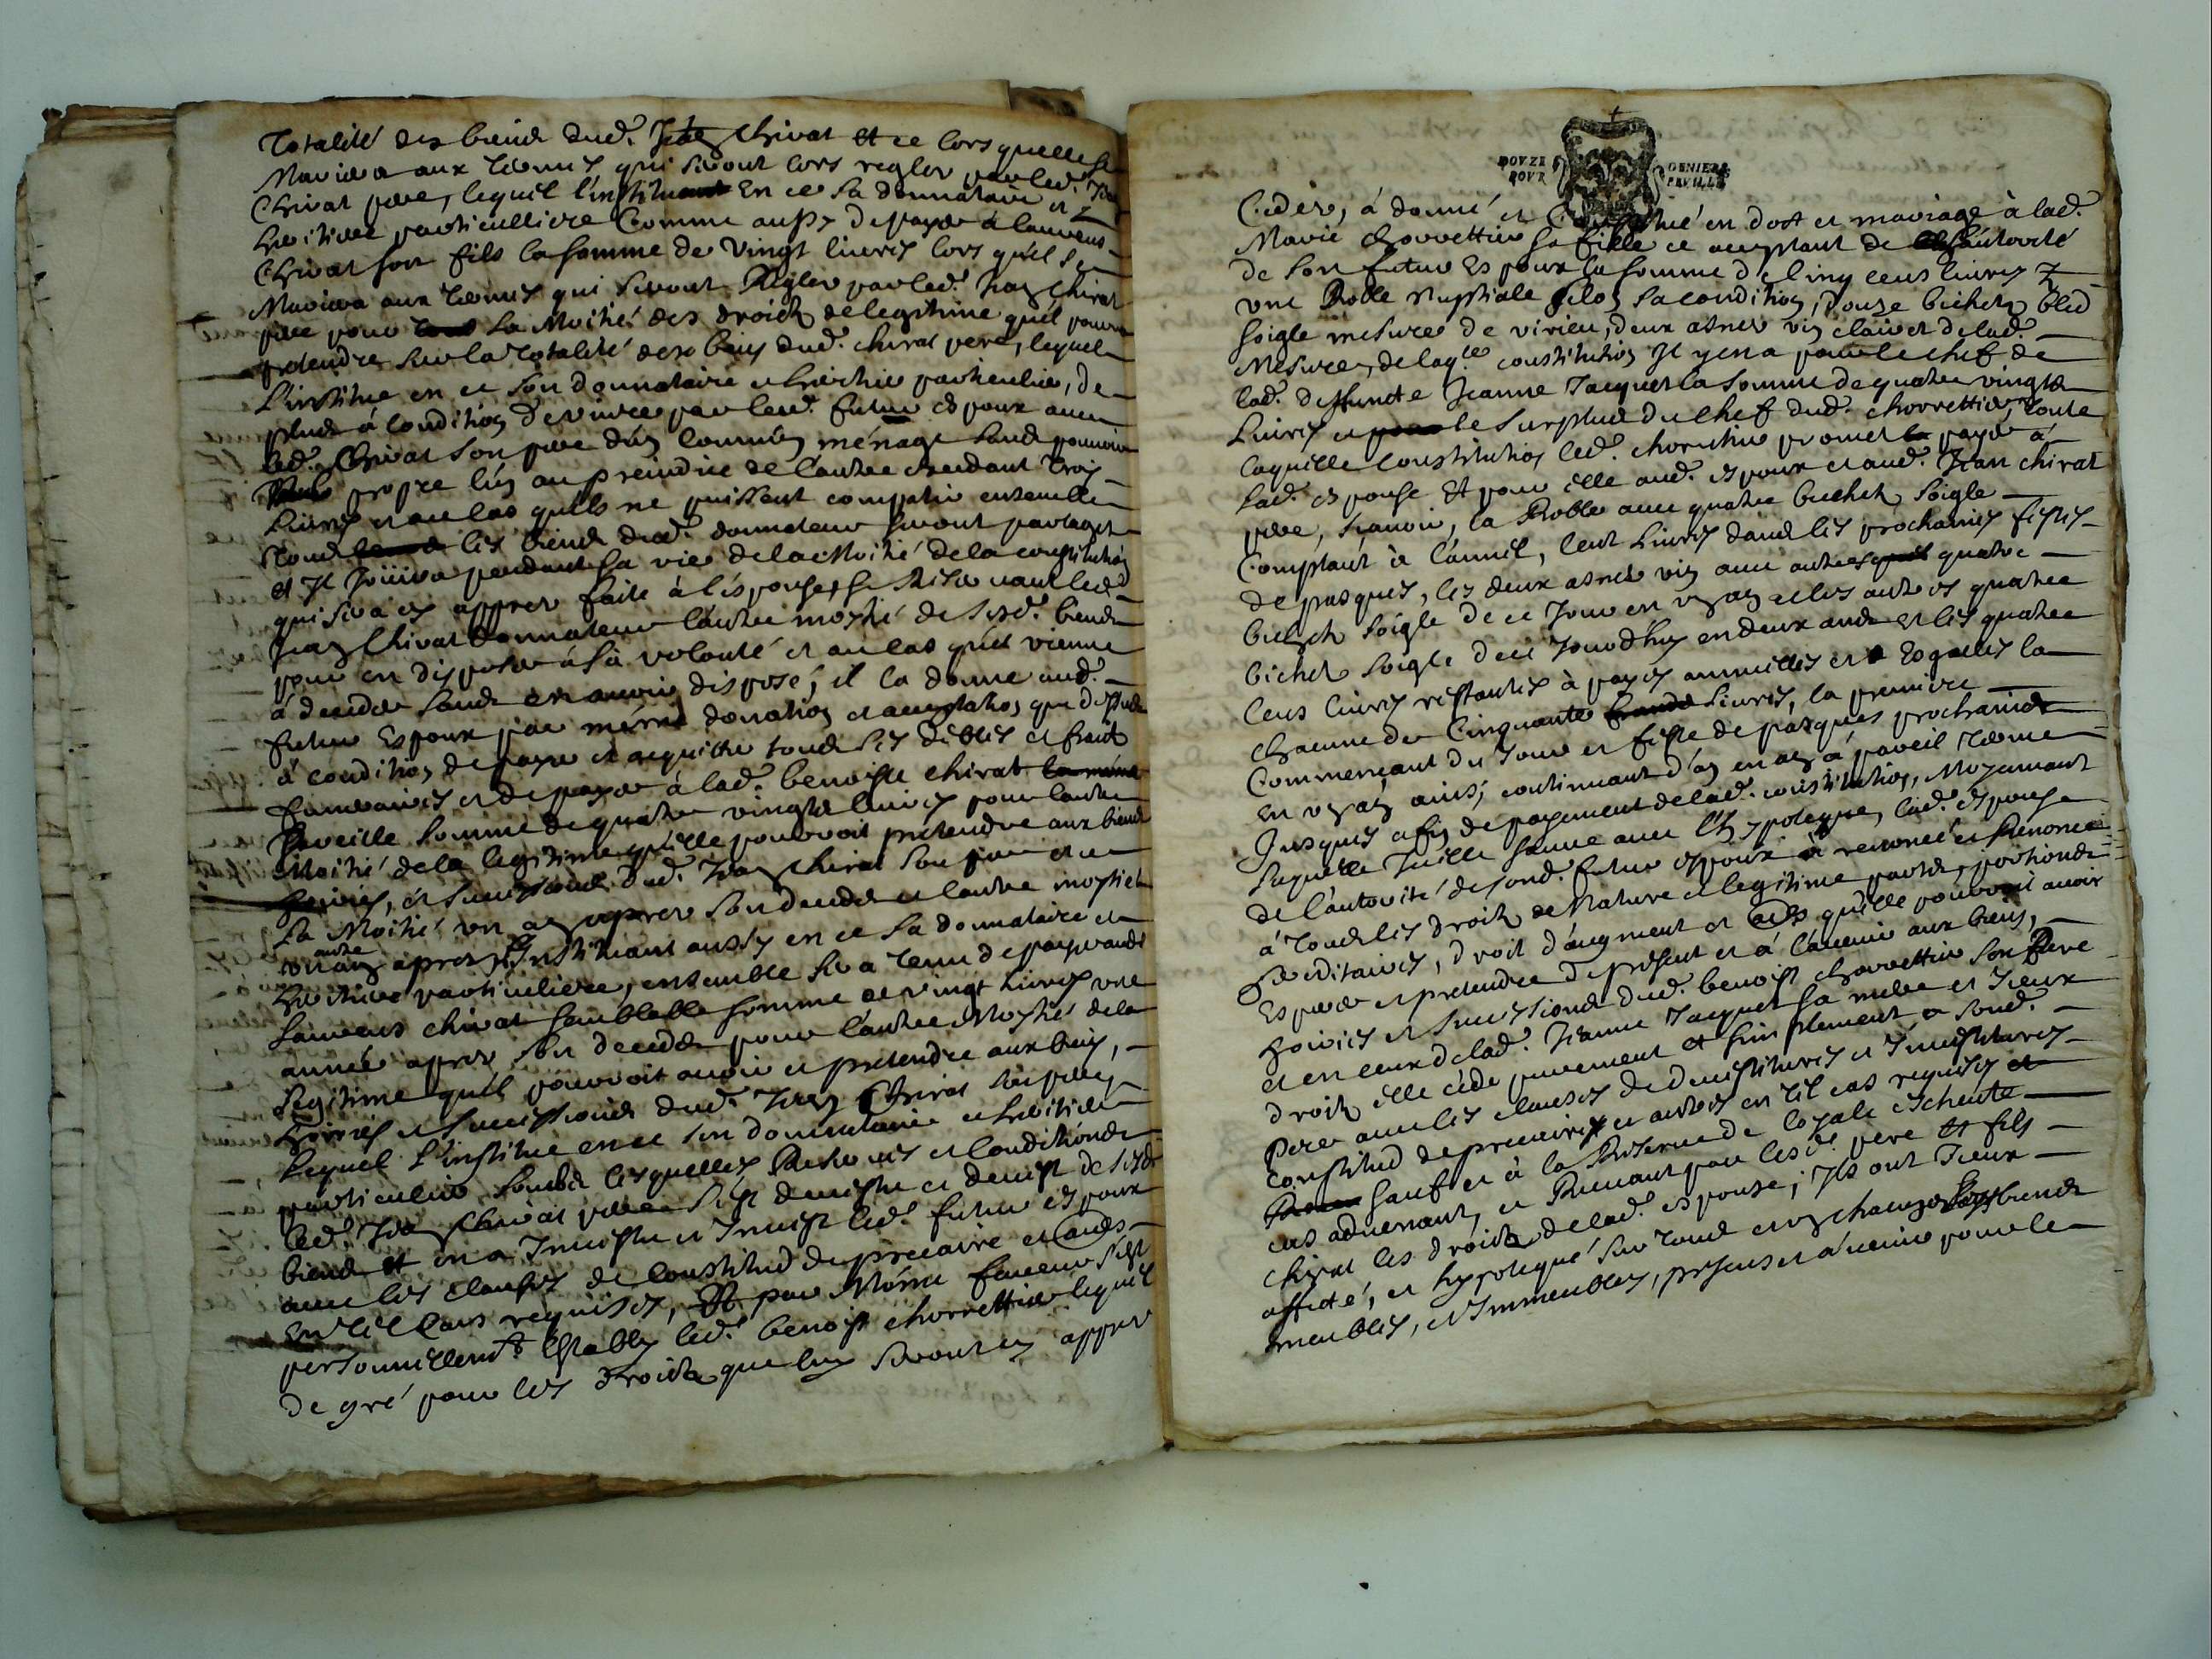 Totalité des biens dud. Jean Chirat et ce lors quelle se
Mariera aux termes qui seront lors regler par led. Jean
Chirat pere, lequel l'instituant en ce sa donnataire et
heritiere particulliere Comme aussy de payer à laurens
Chirat son fils la somme de vingt livres lors qu'il se
Mariera aux termes qui seront Regler par led. Jean Chirat
pere pour la Moitié des droicts de legitime quil pourra
pretendre sur la totalité des biens dud. chirat pere, lequel
L'institue en ce son donnataire et heritier particulier, de
plus à condition de vivre par led. futur espoux avec
led. Chirat son pere d'un commun ménage sans pouvoir
propre l'un au preiudice de l'autre pendant trois
Livres et au cas qu'ils ne puissent compatir ensemble
tous les biens dud. donnateur seront partagés
et Il Jouira pendant sa vie de la Moitié de la constitution
qui sera cy apprez faite à l'espouse, se reservant led.
Jean Chirat donnateur l'autre moytié de sesd. biens
pour en disposer à sa volonté et au cas qu'il vienne
à deceder sans en avoir disposé, il la donne aud.
futur Espoux par méme donation et acceptation que dessus
à condition de payer et acquitter tous ses debtes et frais
funeraires et de payer à lad. benoiste chirat
Pareille somme de quatre vingts livres pour l'autre
Moitié de la legitime qu'elle pourroit pretendre aux biens
hoiries, et successions dud. Jean Chirat son pere et ce
La Moitié un an apprez son decedz et l'autre moytié
autre
un an aprez, Instituant aussy en ce sa donnataire et
heritiere particuliere, ensemble sera tenu de payer aud.
Laurens chirat semblable somme de vingt livres une
année aprez son decedz pour l'autre Moytié de la
Legitime qu'il pourroit avoir et pretendre aux biens,
hoiries et successions dud. Jean Chirat son pere
Lequel L'institue en ce son donnataire et heritier
particulier, soubs lesquelles Reserves et Conditions
led. Jean Chirat pere s'est demestu et devest de sesd.
biens et en a Investu et Investi led. futur espoux
avec les clauses de Constitud de precaire et autres
En tel Cas requises, Et par Méme faveur s'est
personnellemt. Estably led. benoist chorrettier lequel
de gré pour les droicts que luy seront cy apprez
DOVZE DENIERS
POVR FEVILLE
Cedés, à donné et Constitué en dost et mariage à lad.
Marie chorrettier sa fille ce acceptant de l'autorité
de son futur Espoux la somme de Cinq cens livres
une Robbe Nuptiale selon sa condition, douze bichets bled
soigle mesure de virieu, deux asnées vin clairet de lad.
Mesure, de laqle. constitution Il y en a pour le chef de
lad. deffuncte Jeanne Jacquet la somme de quatre vingts
Livres et le surplus du chef dud. chorrettier, toute
laquelle Constitution led. chorretier promet payer à
lad. espouse Et pour elle aud. espoux et aud. Jean chirat
pere, scavoir, la Robbe avec quatre bichets soigle
Comptant à l'anuel, Cent Livres dans les prochaines festes
de pasques, les deux asnées vin avec autres quatre
bichets soigle de ce Jour en un an et les autres quatre
bichets soigle de ce Jourd'huy en deux ans et les quatre
Cens livres restantes à payes annuelles et Esgalles la
chacune de Cinquante livres, la premiere
Commencant du Jour et feste de pasques prochaines
En un an ainsi, continuant d'an en an à pareil terme
Jusques à fin de payement de lad. constitution, Moyennant
Laquelle Icelle sauve avec l'hypoteque, lad. espouse
de l'autorité de sond. futur espoux à renoncé et Renonce
à tous les droicts de Nature et legitime parts, portions
hereditaires, droit d'augment et autres qu'elle pourroit avoir
Esperer et pretendre de present et à l'avenir aux biens,
hoiries et successions dud. benoist chorrettier son Pere
et en ceux de lad. Jeanne Jacquet sa mere et Iceux
droits elle cede purement et simplement à sond.
Pere avec les clauses de devestitures et Investitures
constitud de precaire et autres en tel cas requises et
sauf et à la Reserve de loyale escheute
cas advenant, et Recevant par lesd. pere et fils
Chirat les droits de lad. espouse, Ils ont Iceux
affecté, et hypotequé sur tous et un chacuns leurs biens
meubles, et Immeubles, presens et à venir pour le